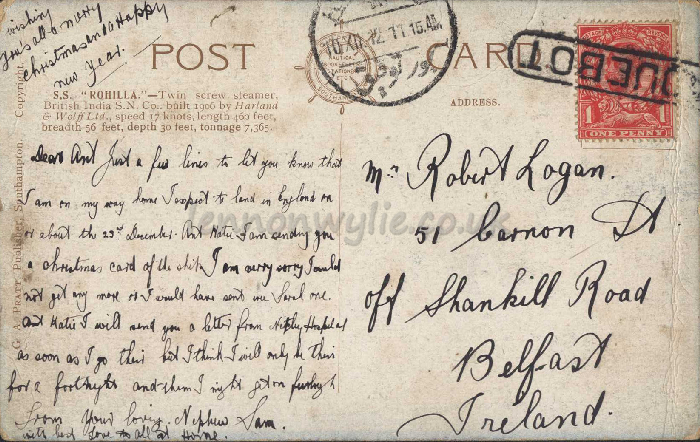 wishing
you all a merry
christmas and a Happy
new Year.
POST CARD
S.S. "ROHILLA."—Twin screw steamer,
British India S.N. Co., built 1906 by Harland
& Wolff Ltd., speed 17 knots, length 460 feet,
breadth 56 feet, depth 30 feet, tonnage 7,365.
Dear Ant Just a few lines to let you know that
I am on my way home I expect to land in England on
or about the 23rd December. Ant Katie I am sending you
a christmas card of the ship I am verry sorry I could
not get any more or I would have sent one
Ant Katie I will send you a letter from Hospital
as soon as I go their but I think I will only be their
for a fortnight and then I might get on furlough
From Your loving Nephew Sam.
with best love to all at Home.
G. A. PRATT, Publisher, Southampton. Copyright.
10 XII 12. 11 15.45
PAQUEBOT
ONE PENNY
1 1
ADDRESS.
Mrs Robert Logan.
51 Carnon St
off Shankill Road
Belfast
Ireland.
lennonwylie.co.uk